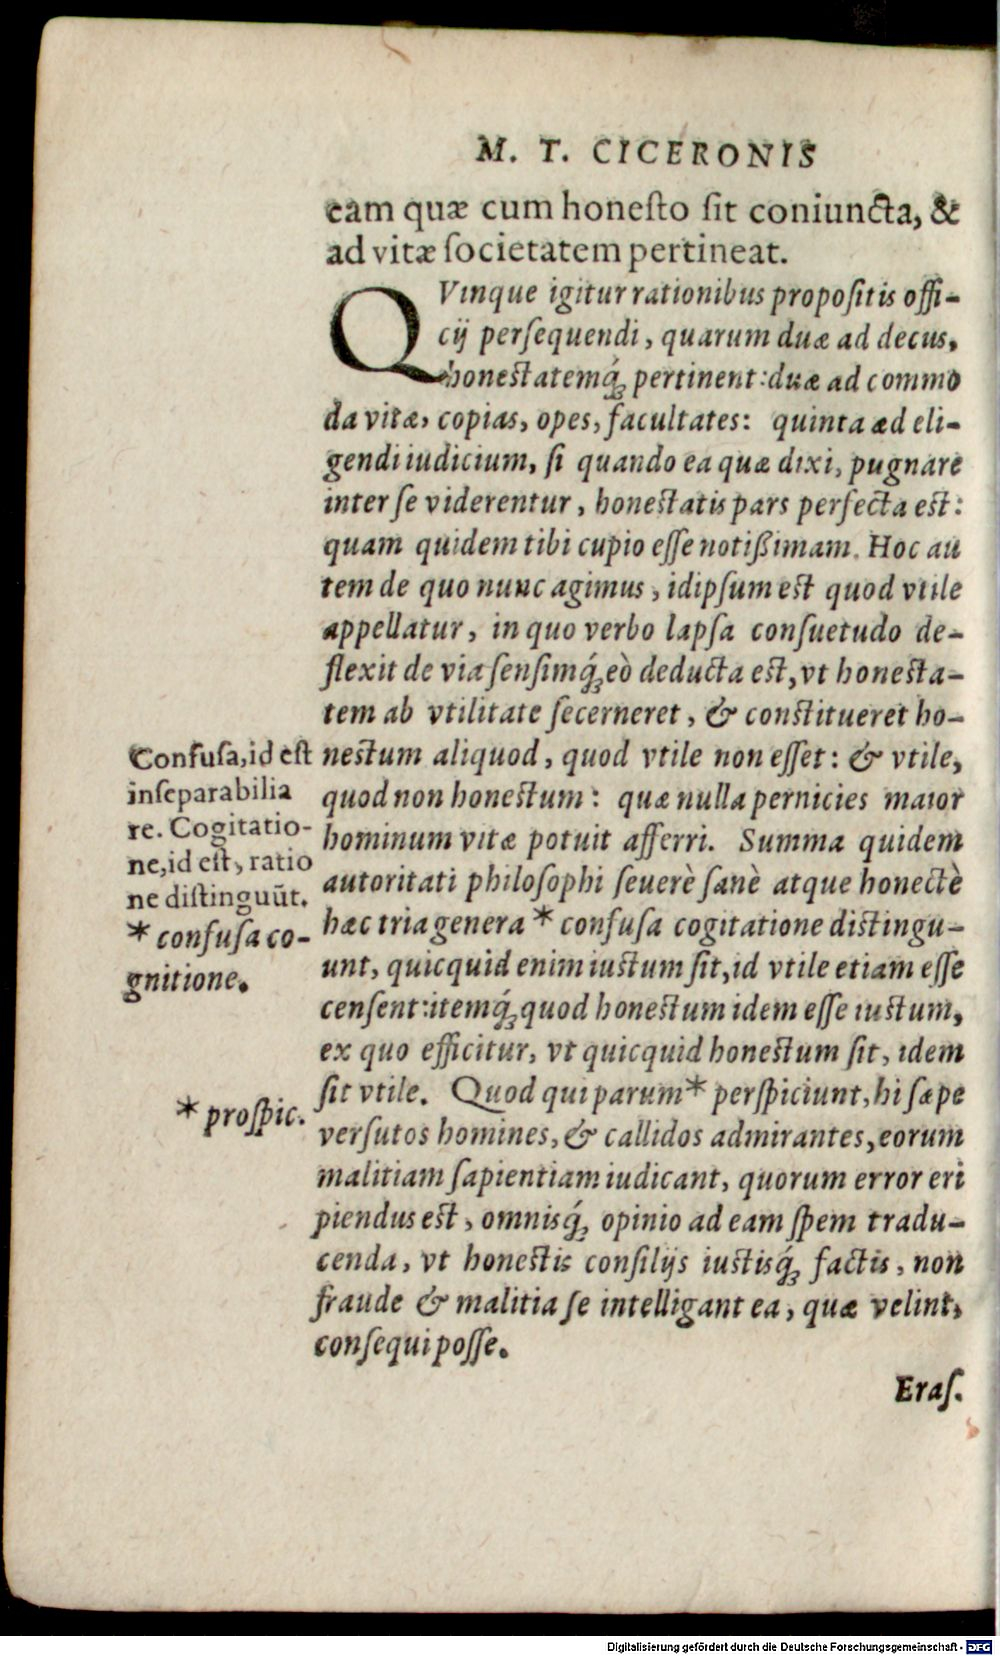 M. T. CICERONIS
eam quæ cum honesto sit coniuncta, &
ad vitæ societatem pertineat.
QVinque igitur rationibus propositis offi-
cij persequendi, quarum duæ ad decus,
honestatemq́; pertinent: duæ ad commo
da vitæ, copias, opes, facultates: quinta ad eli-
gendi iudicium, si quando ea quæ dixi, pugnare
inter se viderentur, honestatis pars perfecta est:
quam quidem tibi cupio esse notißimam. Hoc au
tem de quo nunc agimus, idipsum est quod vtile
appellatur, in quo verbo lapsa consuetudo de-
flexit de via sensimq́; eò deducta est, vt honesta-
tem ab vtilitate secerneret, & constitueret ho-
nestum aliquod, quod vtile non esset: & vtile,
quod non honestum: quæ nulla pernicies maior
hominum vitæ potuit afferri. Summa quidem
autoritati philosophi seuerè sanè atque honectè
hæc tria genera * confusa cogitatione distingu-
unt, quicquid enim iustum sit, id vtile etiam esse
censent: itemq́; quod honestum idem esse iustum,
ex quo efficitur, vt quicquid honestum sit, idem
sit vtile. Quod qui parum * perspiciunt, hi sæpe
versutos homines, & callidos admirantes, eorum
malitiam sapientiam iudicant, quorum error eri
piendus est, omnisq́; opinio ad eam spem tradu-
cenda, vt honestis consilijs iustisq́; factis, non
fraude & malitia se intelligant ea, quæ velint,
consequi posse.
Eras.
Confusa, id est
inseparabilia
re. Cogitatio-
ne, id est, ratio
ne distinguūt.
* confusa co-
gnitione.
* prospic.
Digitalisierung gefördert durch die Deutsche Forschungsgemeinschaft - DFG